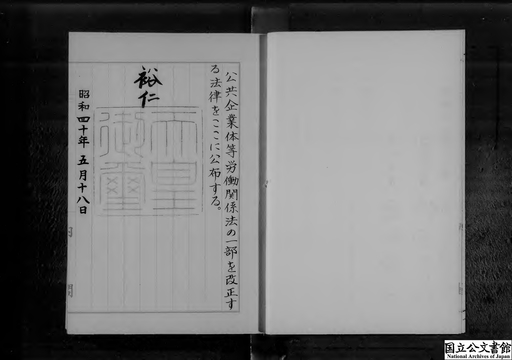 公共企業体等労働関係法の一部を改正す
る法律をここに公布する。
裕仁
天皇
御璽
昭和四十年五月十八日
国立公文書館
National Archives of Japan